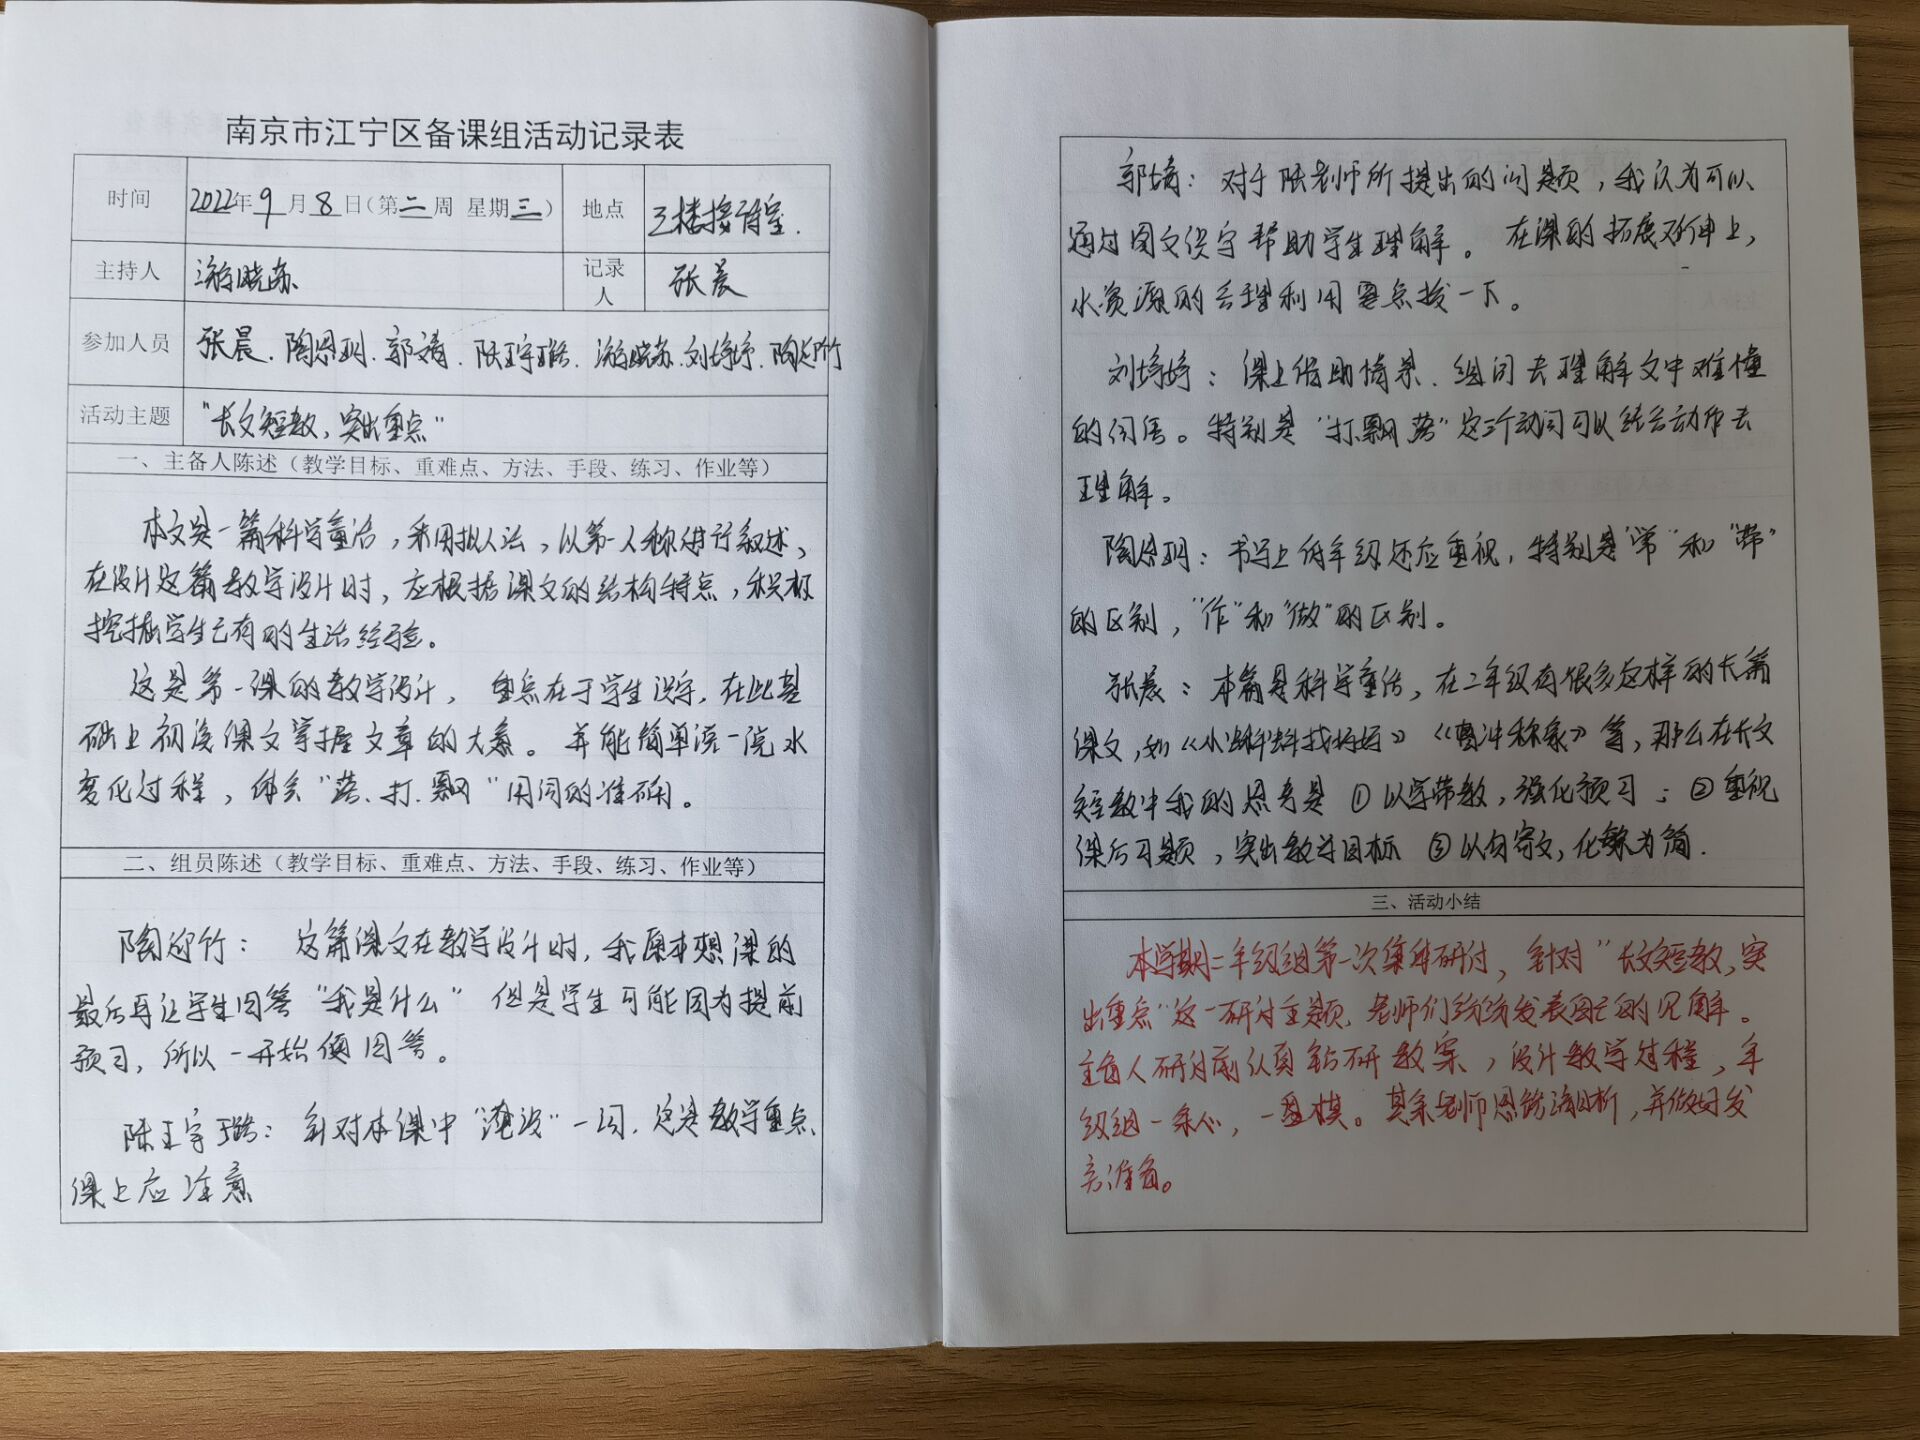 南京市江宁区备课组活动记录表
时间 2022年9月8日（第二周 星期三） 地点 三楼接待室.
主持人 游晓苏 记录人 张晨
参加人员 张晨、陶思玥、郭靖、陈王宇璐、游晓苏、刘婷婷、陶迎竹
活动主题 “长文短教,突出重点”
一、主备人陈述（教学目标、重难点、方法、手段、练习、作业等）
本文是一篇科学童话，采用拟人法，以第一人称进行叙述，
在设计这篇教学设计时，应根据课文的结构特点，积极
挖掘学生已有的生活经验。
这是第一课的教学设计，重点在于学生识字，在此基
础上初读课文掌握文章的大意。并能简单说一说水
变化过程，体会“落、打、飘”用词的准确。
二、组员陈述（教学目标、重难点、方法、手段、练习、作业等）
陶迎竹：这篇课文在教学设计时，我原本想课的
最后再让学生回答“我是什么”但是学生可能因为提前
预习，所以一开始便回答。
陈王宇璐：针对本课中“淹没”一词，这是教学重点，
课上应注意
郭靖：对于陈老师所提出的问题，我认为可以
通过图文识字帮助学生理解。在课的拓展延伸上，
水资源的合理利用要点拨一下。
刘婷婷：课上借助情景、组词去理解文中难懂
的词语。特别是“打、飘、落”这三个动词可以结合动作去
理解。
陶思玥：书写上低年级还应重视，特别是“常”和“带”
的区别，“作”和“做”的区别。
张晨：本篇是科学童话，在二年级有很多这样的长篇
课文，如《小蝌蚪找妈妈》《曹冲称象》等，那么在长文
短教中我的思考是①以字带教，强化预习；②重视
课后习题，突出教学目标③以句带文，化繁为简.
三、活动小结
本学期二年级组第一次集体研讨，针对“长文短教，突
出重点”这一研讨主题，老师们纷纷发表自己的见解。
主备人研讨前认真钻研教案，设计教学过程，年
级组一条心，一盘棋。其余老师思路清晰，并做好发
言准备。